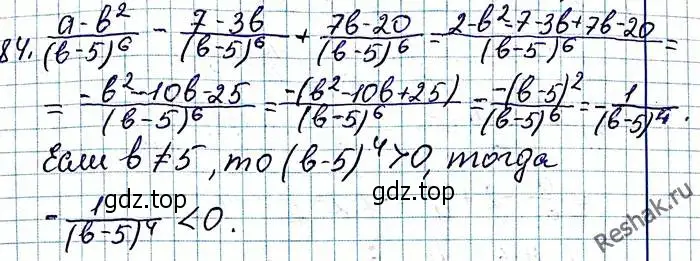 84. (a-b²)/(b-5)⁶ - (7-3b)/(b-5)⁶ + (7b-20)/(b-5)⁶ = (2-b²-7-3b+7b-20)/(b-5)⁶ =
= (-b²-10b-25)/(b-5)⁶ = (-(b²-10b+25))/(b-5)⁶ = (-(b-5)²)/(b-5)⁶ = -1/(b-5)⁴.
Если b≠5, то (b-5)⁴>0, тогда
-1/(b-5)⁴ <0.
гдз.top
гдз.top
Reshak.ru